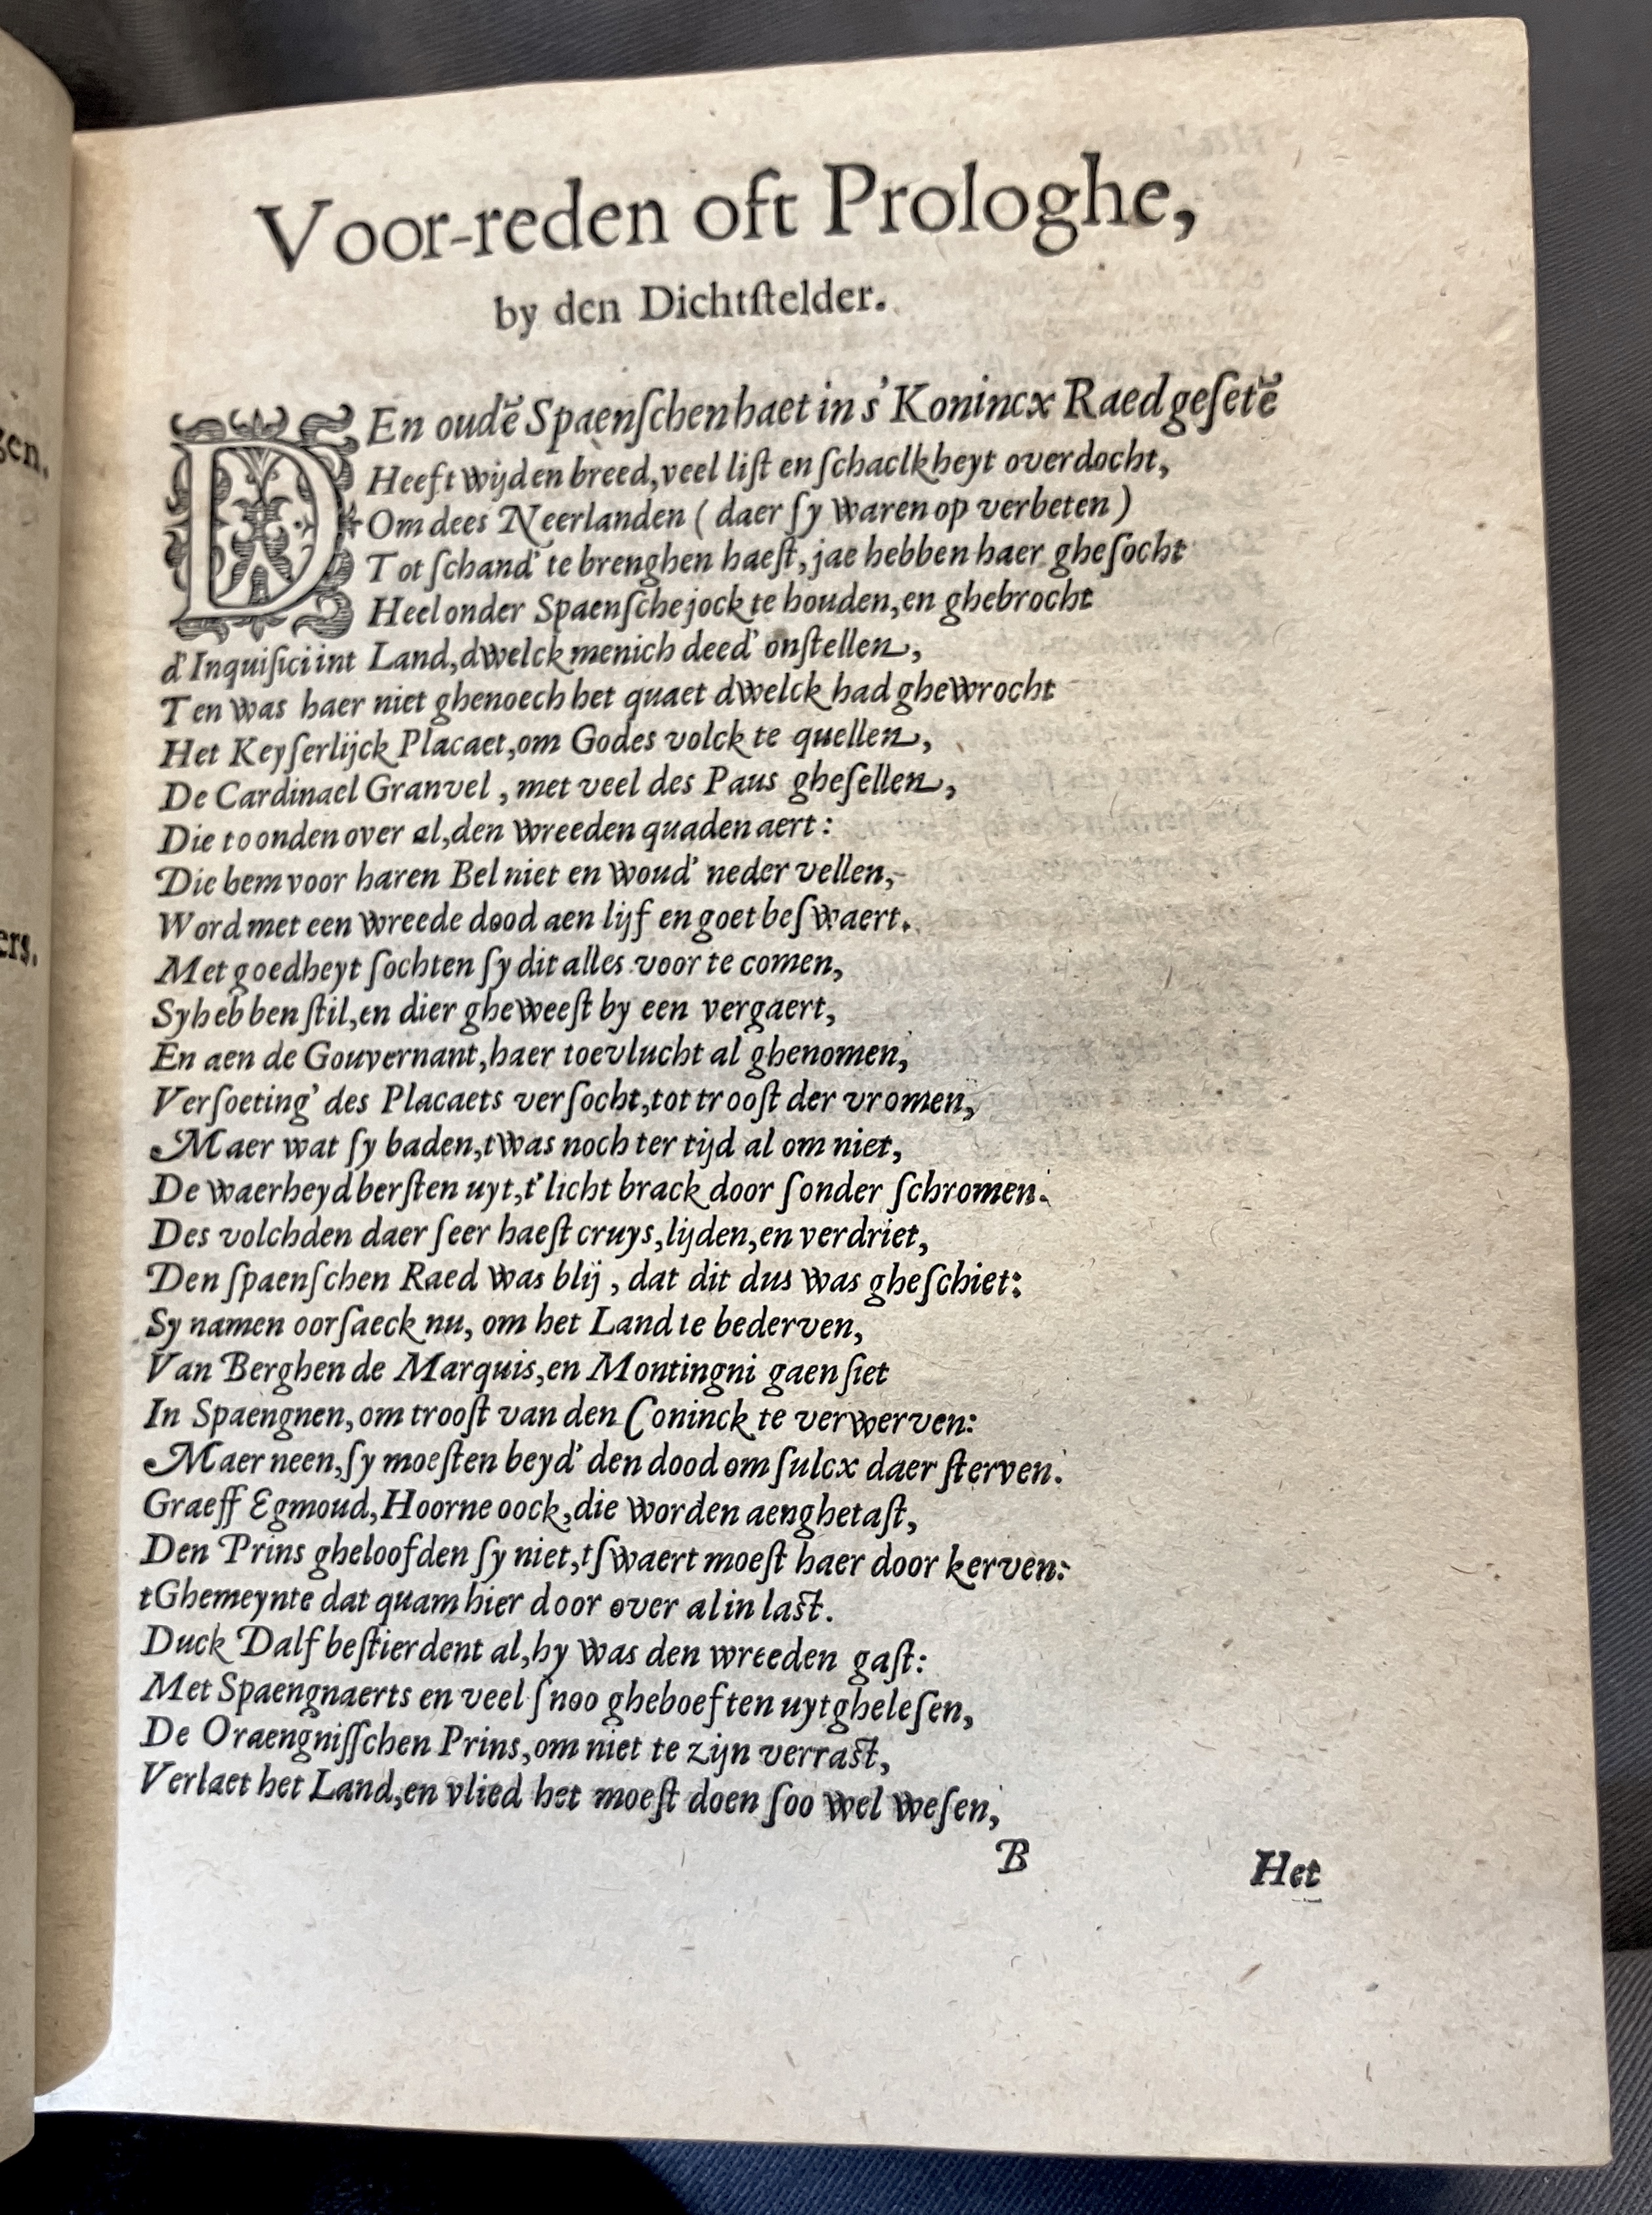 gen.
ers.
Voor-reden oft Prologhe,
by den Dichtſtelder.
DEn oudē Spaenſchen haet in s' Konincx Raed geſetē
Heeft wijd en breed, veel liſt en ſchaclkheyt overdocht,
Om dees Neerlanden ( daer ſy waren op verbeten )
Tot ſchand' te brenghen haeſt, jae hebben haer gheſocht
Heel onder Spaenſche jock te houden, en ghebrocht
d'Inquiſici int Land, dwelck menich deed' onſtellen,
Ten was haer niet ghenoech het quaet dwelck had ghewrocht
Het Keyſerlijck Placaet, om Godes volck te quellen,
De Cardinael Granvel, met veel des Paus gheſellen,
Die toonden over al, den wreeden quaden aert:
Die hem voor haren Bel niet en woud' neder vellen,
Word met een wreede dood aen lijf en goet beſwaert.
Met goedheyt ſochten ſy dit alles voor te comen,
Sy hebben ſtil, en dier gheweeſt by een vergaert,
En aen de Gouvernant, haer toevlucht al ghenomen,
Verſoeting' des Placaets verſocht, tot trooſt der vromen,
Maer wat ſy baden, twas noch ter tijd al om niet,
De waerheyd berſten uyt, t'licht brack door ſonder ſchromen.
Des volchden daer ſeer haeſt cruys, lijden, en verdriet,
Den ſpaenſchen Raed was blij, dat dit dus was gheſchiet:
Sy namen oorſaeck nu, om het Land te bederven,
Van Berghen de Marquis, en Montingni gaen ſiet
In Spaengnen, om trooſt van den Coninck te verwerven:
Maer neen, ſy moeſten beyd' den dood om ſulcx daer ſterven.
Graeff Egmoud, Hoorne oock, die worden aenghetaſt,
Den Prins gheloofden ſy niet, tſwaert moeſt haer door kerven:
tGhemeynte dat quam hier door over al in laſt.
Duck Dalf beſtierdent al, hy was den wreeden gaſt:
Met Spaengnaerts en veel ſnoo gheboeften uytgheleſen,
De Oraengniſſchen Prins, om niet te zijn verraſt,
Verlaet het Land, en vlied het moeſt doen ſoo wel weſen,
B
Het